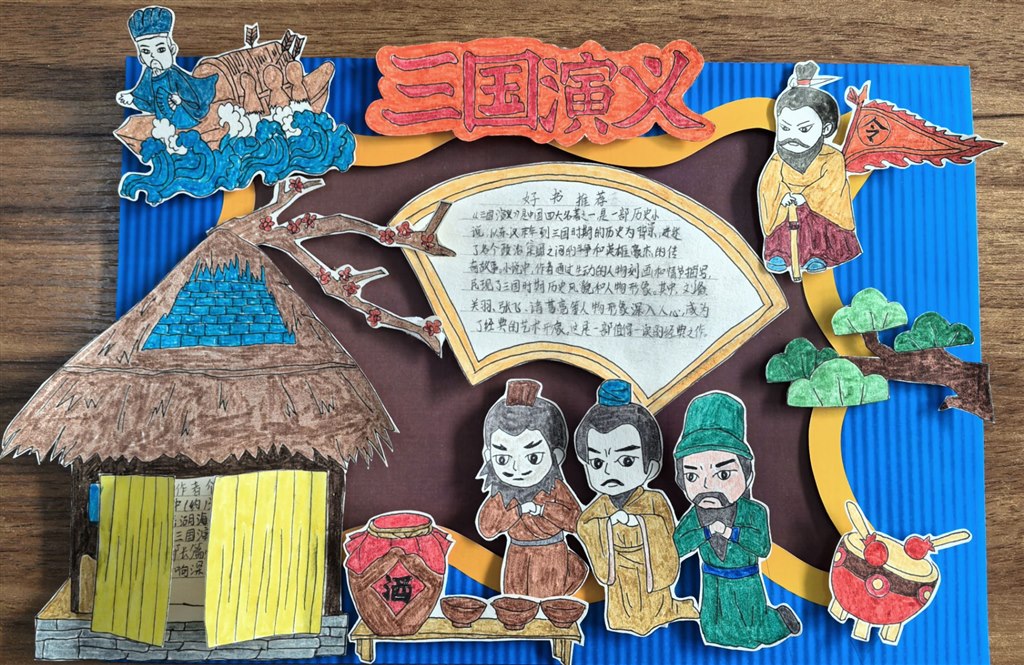 三国演义
令
好书推荐
《三国演义》是中国四大名著之一是一部历史小
说,以东汉末年到三国时期的历史为背景,讲述
了各个政治集团之间的斗争和英雄豪杰的传
奇故事。小说中,作者通过生动的人物刻画和情节描写,
展现了三国时期历史风貌和人物形象。其中,刘备
关羽、张飞、诸葛亮等人物形象深入人心,成为
了经典的艺术形象,这是一部值得一读的经典之作。
作者
三国
酒